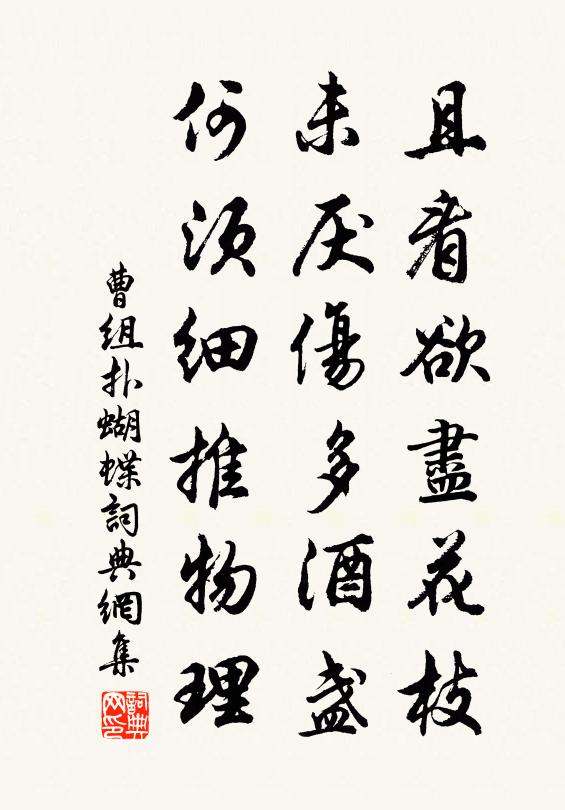 且看欲盡花枝
未厌傷多酒盏
何須細推物理
曹組扑蝴蝶詞典網集
詞典网印